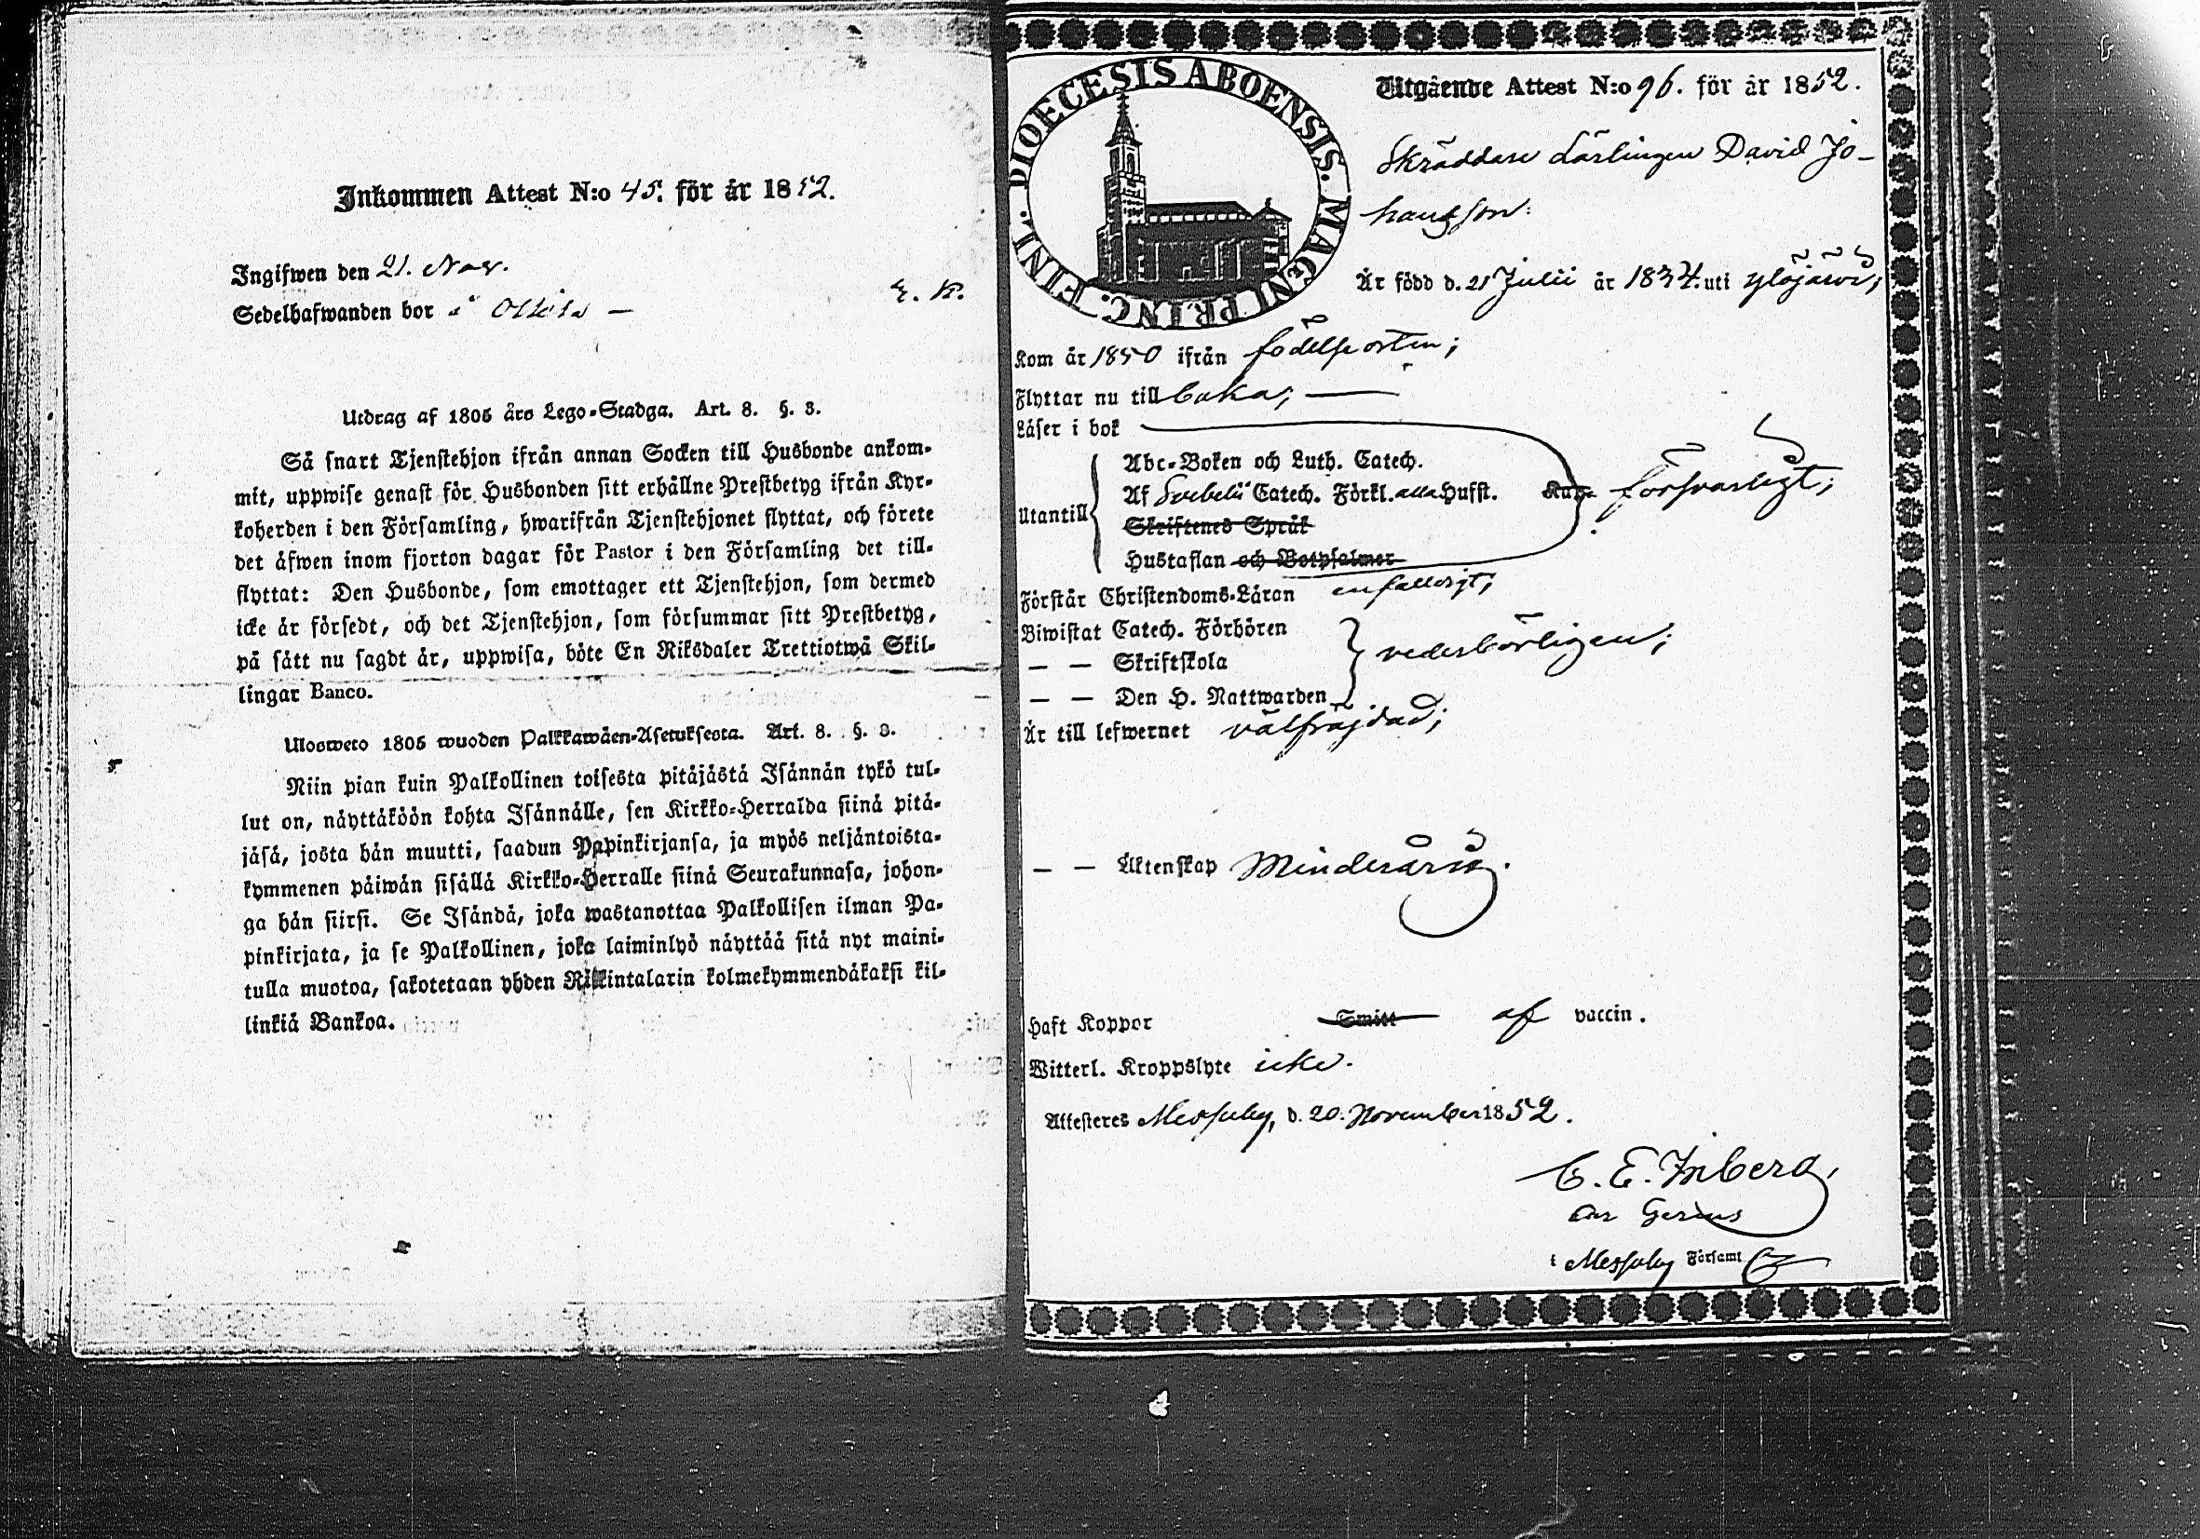 Inkommen Attest N:o 45. för år 1852.
Ingifwen den 21. Nov.
E. K.
Sedelhafwanden bor i
Utdrag af 1805 års Lego-Stadga. Art. 8. §. 3.
Så snart Tjenstehjon ifrån annan Socken till Husbonde ankom-
mit, uppwise genast för Husbonden sitt erhållne Prestbetyg ifrån Kyr-
koherden i den Församling, hwarifrån Tjenstehjonet flyttat, och förete
det äfwen inom fjorton dagar för Pastor i den Församling det till-
flyttat: Den Husbonde, som emottager ett Tjenstehjon, som dermed
icke är försedt, och det Tjenstehjon, som försummar sitt Prestbetyg,
på sätt nu sagdt är, uppwisa, böte En Riksdaler Trettiotwå Skil-
lingar Banco.
Ulosweto 1805 wuoden Palkkawäen-Asetuksesta. Art. 8. §. 3.
Niin pian kuin Palkollinen toisesta pitäjästä Isännän tykö tul-
lut on, näyttäköön kohta Isännälle, sen Kirkko-Herralda siinä pitä-
jäsä, josta hän muutti, saadun Papinkirjansa, ja myös neljäntoista-
kymmenen päiwän sisällä Kirkko-Herralle siinä Seurakunnasa, johon-
ga hän siirsi. Se Isändä, joka wastanottaa Palkollisen ilman Pa-
pinkirjata, ja se Palkollinen, joka laiminlyö näyttää sitä nyt maini-
tulla muotoa, sakotetaan yhden Rikintalarin kolmekymmendäkaksi kil-
linkiä Bankoa.
DIOECESIS ABOENSIS. MAGNI PRINC. FINL.
Utgående Attest N:o 96. för år 1852.
Skräddare Lärlingen David Jo-
hansson:
Är född d. 21 Julii år 1834. uti Ylöjärvi;
Kom år 1850 ifrån födelseorten;
Flyttar nu till baka; —
Läser i bok
Abc-Boken och Luth. Catech.
Utantill Af Svebelii Catech. Förkl. alla Hufst. försvarligt;
Skriftenes Språk
Hustaflan och Botpsalmer
Förstår Christendoms-Läran enfaldigt;
Biwistat Catech. Förhören
— — Skriftskola vederbörligen;
— — Den H. Nattwarden
Är till lefwernet välfräjdad;
— — Äktenskap Minderårig.
Haft Koppor Smitt af vaccin.
Witterl. Kroppslyte icke.
Attesteres Messuby, d. 20. November 1852.
C. E. Inberg,
i Messuby Församl